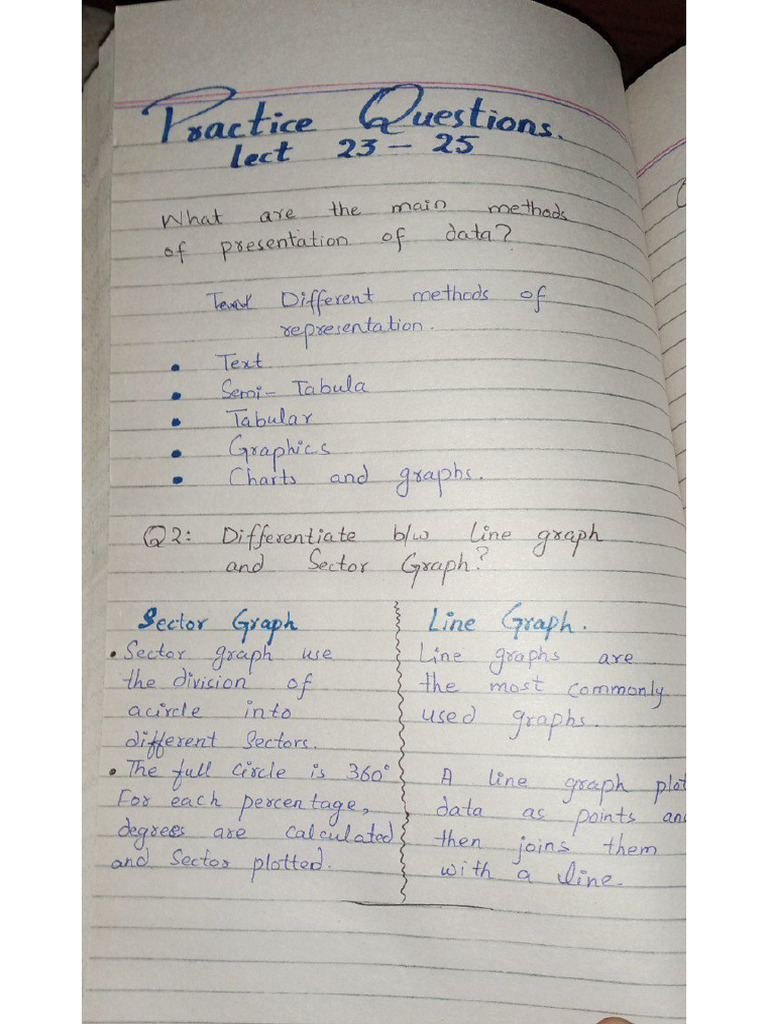 Practice Questions.
Lect 23 - 25
What are the main methods
of presentation of data?
Different methods of
representation.
• Text
• Semi-Tabula
• Tabular
• Graphics
• Charts and graphs.
Q2: Differentiate b/w Line graph
and Sector Graph?
Sector Graph
• Sector graph use
the division of
acircle into
different Sectors.
• The full circle is 360°
For each percentage,
degrees are calculated
and Sector plotted.
Line Graph.
Line graphs are
the most commonly
used graphs.
A line graph plot
data as points an
then joins them
with a line.